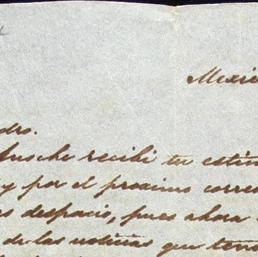 Mexi
dro.
noche recibi tu estim
y por el proximo corres
s despacio, pues ahora
de las noticias que ten